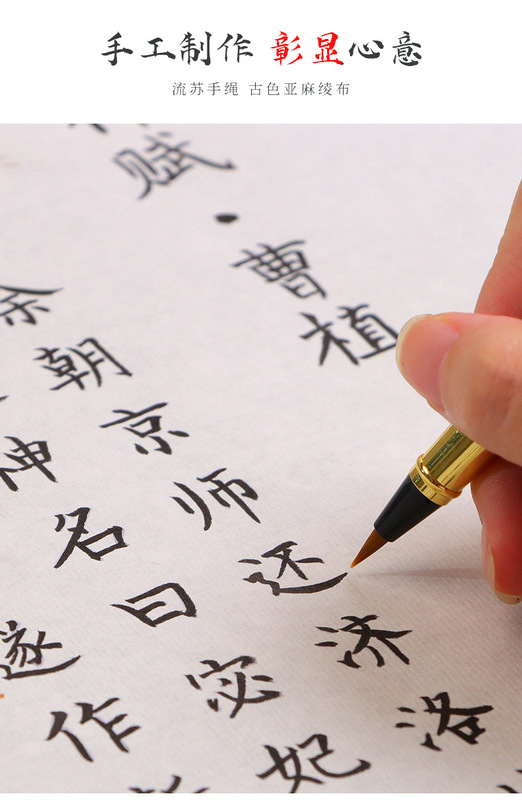 手工制作 彰显心意
流苏手绳 古色亚麻绫布
赋·曹植
余朝京师还济洛
神名曰宓妃
遂作